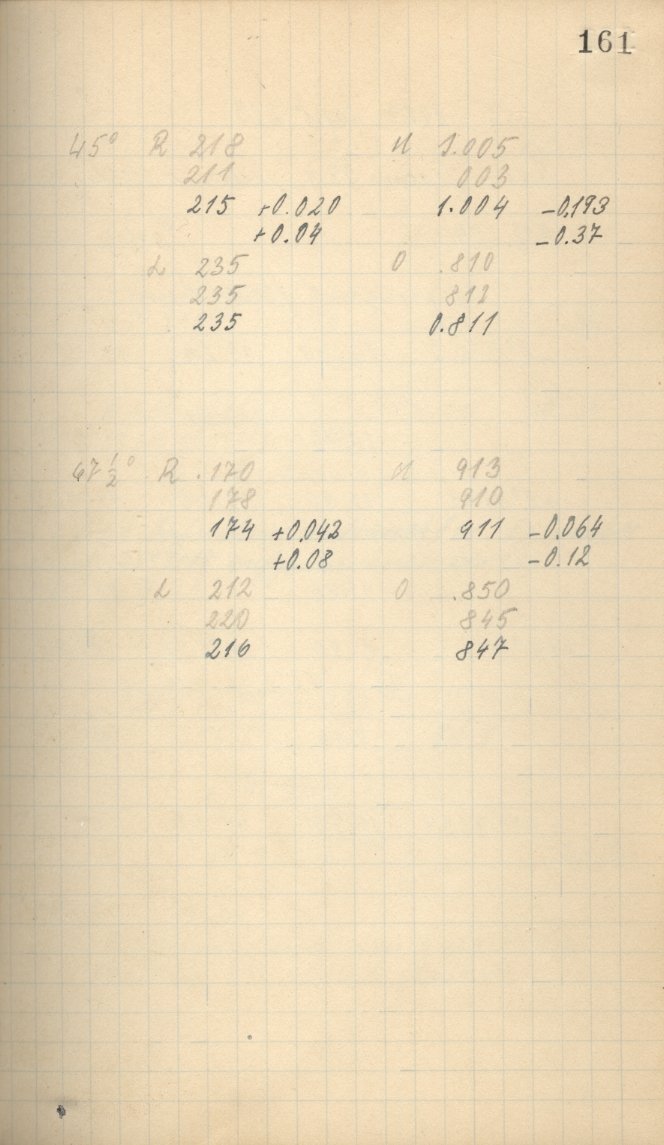 161
45° R 218 U 1.005
211 003
215 +0.020 1.004 -0.193
+0.04 -0.37
L 235 O .810
235 812
235 0.811
67 1/2° R .170 U 913
178 910
174 +0.042 911 -0.064
+0.08 -0.12
L 212 O .850
220 845
216 847